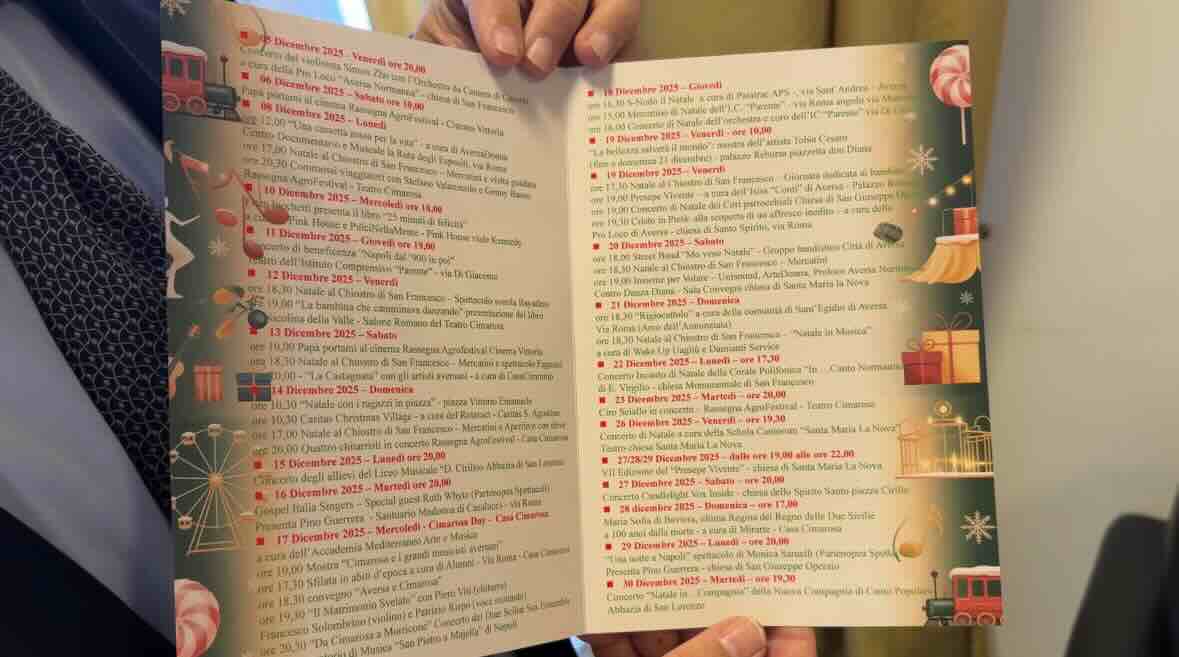 05 Dicembre 2025 - Venerdì ore 20,00
Concerto del violinista Simon Zhu con l'Orchestra da Camera di Caserta
a cura della Pro Loco "Aversa Normanna" - chiesa di San Francesco
06 Dicembre 2025 - Sabato ore 10,00
Papà portami al cinema Rassegna AgroFestival - Cinema Vittoria
08 Dicembre 2025 – Lunedì
ore 12,00 "Una casetta rossa per la vita" - a cura di AversaDonna
Centro Documentativo e Musicale la Rota degli Esposti, via Roma
ore 17,00 Natale al Chiostro di San Francesco – Mercatini e visita guidata
ore 20,30 Commensi viaggiatori con Stefano
Rassegna AgroFestival - Teatro Cimarosa
10 Dicembre 2025 – Mercoledì ore 18,00
presenta il libro "25 minuti di felicità"
a cura Pink House e PuliciNellaMente - Pink House viale Kennedy
11 Dicembre 2025 – Giovedì ore 19,00
Concerto di beneficenza "Napoli dal '900 in poi"
Teatro dell'Istituto Comprensivo "Parente" - via Di Giacomo
12 Dicembre 2025 – Venerdì
ore 18,30 Natale al Chiostro di San Francesco - Spettacolo scuola
ore 19,00 "La bambina che camminava danzando" presentazione del libro
Nicolina della Valle - Salone Romano del Teatro Cimarosa
13 Dicembre 2025 – Sabato
ore 19,00 Papà portami al cinema Rassegna Agrofestival Cinema Vittoria
ore 18,30 Natale al Chiostro di San Francesco – Mercatini e spettacolo
20,00 - "La Castagnata" con gli artisti aversani - a cura di CasaCimarosa
14 Dicembre 2025 – Domenica
ore 10,30 "Natale con i ragazzi in piazza" - piazza Vittorio Emanuele
ore 10,30 Caritas Christman Village - a cura del Rotaract - Caritas S. Agostino
ore 17,00 Natale al Chiostro di San Francesco – Mercatini e Aperitivo con olive
ore 20,00 Quattro chitarristi in concerto Rassegna AgroFestival - Casa Cimarosa
15 Dicembre 2025 – Lunedì ore 20,00
Concerto degli allievi del Liceo Musicale "D. Cirillo" Abbazia di San Lorenzo
16 Dicembre 2025 – Martedì ore 20,00
Gospel Italia Singers – Special guest Ruth Whyte (Partenopea Spettacoli)
Presenta Pino Guerrera - Santuario Madonna di Casaluce) - via Roma
17 Dicembre 2025 – Mercoledì - Cimarosa Day – Casa Cimarosa
a cura dell'Accademia Mediterraneo Arte e Musica
ore 10,00 Mostra "Cimarosa e i grandi musicisti aversani"
ore 17,30 Sfilata in abiti d'epoca a cura di Alumni - Via Roma - Casa Cimarosa
ore 18,30 convegno "Aversa e Cimarosa"
ore 19,30 "Il Matrimonio Svelato" con Piero Viti (chitarra)
Francesco Solombrino (violino) e Patrizio Rispo (voce recitante)
ore 20,30 "Da Cimarosa a Morricone" Concerto dei Due Sicilie Sax Ensemble
di Musica "San Pietro a Majella" di Napoli
18 Dicembre 2025 – Giovedì
ore 16,30 S-Nodo il Natale a cura di Patatrac APS - via Sant'Andrea
ore 15,00 Mercatino di Natale dell'I.C. "Parente" - via Roma angolo via
ore 18,00 Concerto di Natale dell'orchestra e coro dell'IC "Parente" via Di
19 Dicembre 2025 – Venerdì - ore 10,00
"La bellezza salverà il mondo": mostra dell'artista Tobia Cesaro
(fino a domenica 21 dicembre) - palazzo Rebursa piazzetta don Diana
19 Dicembre 2025 – Venerdì
ore 17,30 Natale al Chiostro di San Francesco – Giornata dedicata ai bambini
ore 19,00 Presepe Vivente – a cura dell'Isiss "Conti" di Aversa - Palazzo
ore 19,00 Concerto di Natale dei Cori parrocchiali Chiesa di San Giuseppe
ore 19,30 Cristo in Pietà: alla scoperta di un affresco inedito – a cura della
Pro Loco di Aversa - chiesa di Santo Spirito, via Roma
20 Dicembre 2025 – Sabato
ore 18,00 Street Band "Mo vene Natale" - Gruppo bandistico Città di Aversa
ore 18,30 Natale al Chiostro di San Francesco – Mercatini
ore 19,00 Insieme per Volare – Unisound, ArteDonna, Proloco Aversa
Centro Danza Diana - Sala Convegni chiesa di Santa Maria la Nova
21 Dicembre 2025 – Domenica
ore 18,30 "Rigiocattolo" a cura della comunità di Sant'Egidio di Aversa
Via Roma (Arco dell'Annunziata)
ore 18,30 Natale al Chiostro di San Francesco – "Natale in Musica"
a cura di Wake Up Uagliù e Damianti Service
22 Dicembre 2025 – Lunedì – ore 17,30
Concerto Incanto di Natale della Corale Polifonica "In…Canto Normanno"
di E. Virgilio - chiesa Monumentale di San Francesco
23 Dicembre 2025 – Martedì – ore 20,00
Ciro Sciallo in concerto - Rassegna AgroFestival - Teatro Cimarosa
26 Dicembre 2025 – Venerdì – ore 19,30
Concerto di Natale a cura della Schola Cantorum "Santa Maria La Nova"
Teatro chiesa Santa Maria La Nova
27/28/29 Dicembre 2025 – dalle ore 19,00 alle ore 22,00
VII Edizione del "Presepe Vivente" - chiesa di Santa Maria La Nova
27 Dicembre 2025 – Sabato – ore 20,00
Concerto Candlelight Vox Inside - chiesa dello Spirito Santo piazza Cirillo
28 dicembre 2025 – Domenica – ore 17,00
Maria Sofia di Baviera, ultima Regina del Regno delle Due Sicilie
a 100 anni dalla morte - a cura di Mirarte - Casa Cimarosa
29 Dicembre 2025 – Lunedì – ore 20,00
"Una notte a Napoli" spettacolo di Monica Sarnelli (Partenopea
Presenta Pino Guerrera - chiesa di San Giuseppe Operaio
30 Dicembre 2025 – Martedì – ore 19,30
Concerto "Natale in…Compagnia" della Nuova Compagnia di Canto Popolare
Abbazia di San Lorenzo